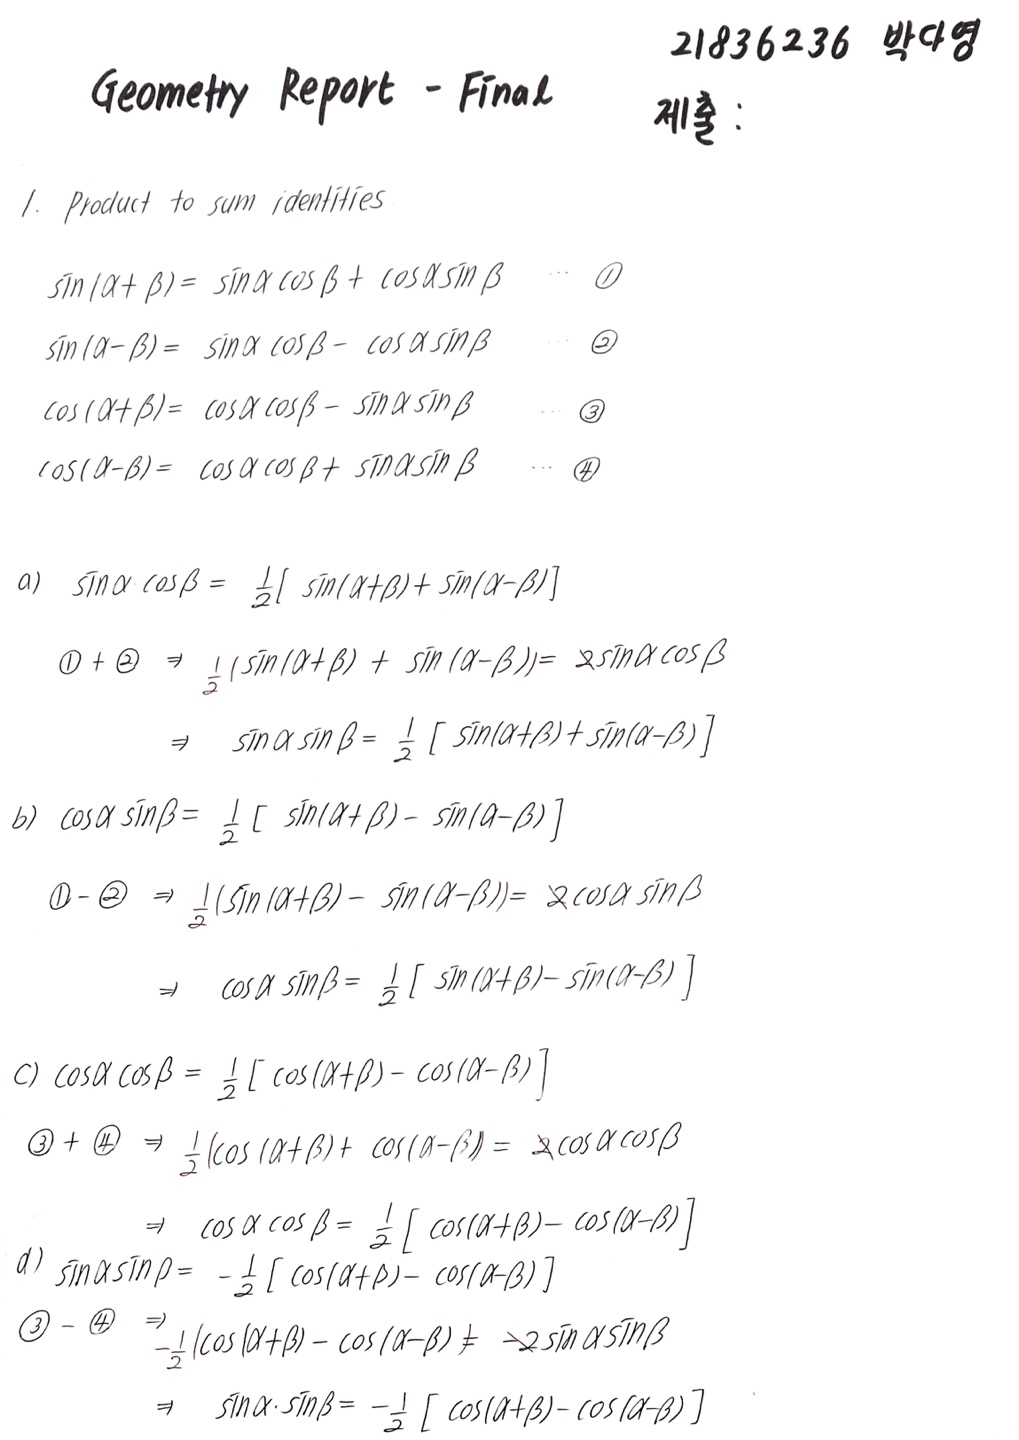 21836236 박다영
Geometry Report - Final
제출 :
1. Product to sum identities
sin(α+β) = sinα cosβ + cosα sinβ ··· ①
sin(α-β) = sinα cosβ - cosα sinβ ··· ②
cos(α+β) = cosα cosβ - sinα sinβ ··· ③
cos(α-β) = cosα cosβ + sinα sinβ ··· ④
a) sinα cosβ = 1/2 [ sin(α+β) + sin(α-β)]
① + ② ⇒ 1/2 (sin(α+β) + sin(α-β)) = 2sinα cosβ
⇒ sinα sinβ = 1/2 [ sin(α+β) + sin(α-β)]
b) cosα sinβ = 1/2 [ sin(α+β) - sin(α-β)]
① - ② ⇒ 1/2 (sin(α+β) - sin(α-β)) = 2cosα sinβ
⇒ cosα sinβ = 1/2 [ sin(α+β) - sin(α-β)]
c) cosα cosβ = 1/2 [ cos(α+β) - cos(α-β)]
③ + ④ ⇒ 1/2 (cos(α+β) + cos(α-β)) = 2cosα cosβ
⇒ cosα cosβ = 1/2 [ cos(α+β) - cos(α-β)]
d) sinα sinβ = -1/2 [ cos(α+β) - cos(α-β)]
③ - ④ ⇒ -1/2 (cos(α+β) - cos(α-β) = -2sinα sinβ
⇒ sinα·sinβ = -1/2 [ cos(α+β) - cos(α-β)]